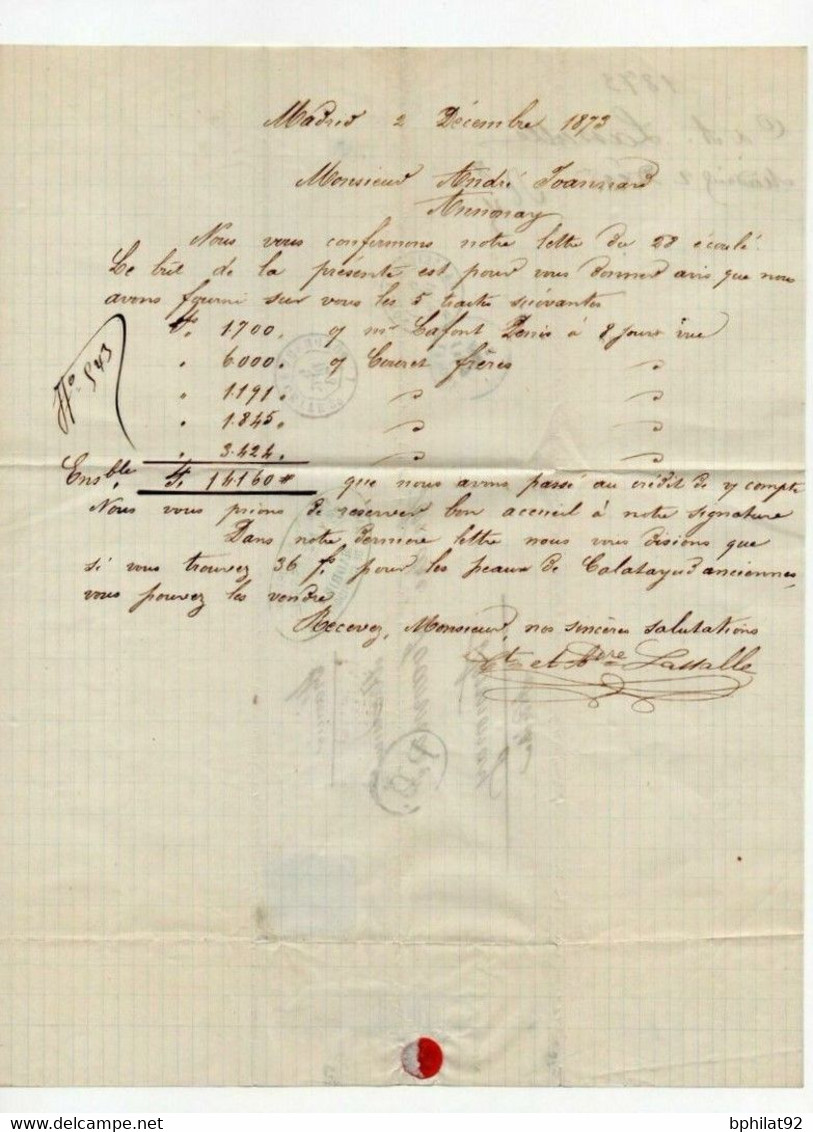 Madrid 2 Décembre 1873
Monsieur André Joannard
Annonay
Nous vous confirmons notre lettre du 28 écoulé.
Le but de la présente est pour vous donner avis que nous
avons fourni sur vous les 5 traites suivantes
fs. 1700. o/ mr Lafont Denis à 8 jours vue
" 6000. o/ Couret frères "
" 1191. " "
" 1.845. " "
" 3.424. " "
No. 543
Ensble. F. 14160 # que nous avons passé au crédit de v/ compte
Nous vous prions de réserver bon accueil à notre signature
Dans notre dernière lettre nous vous disions que
si vous trouvez 36 fs. pour les peaux de Calatayud anciennes,
vous pouvez les vendre
Recevez, Monsieur, nos sincères salutations
et Lassalle
1873
P.D.
bphilat92